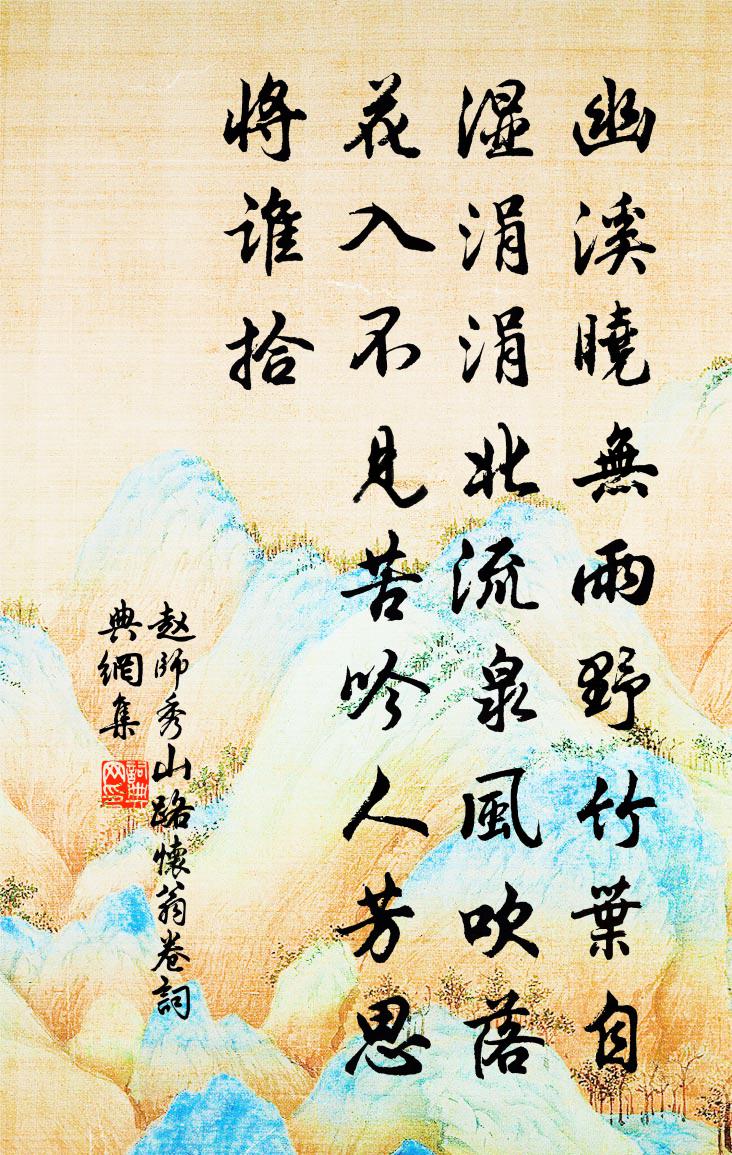 幽溪曉無雨野竹葉自
湿涓涓北流泉風吹落
花入不見苦吟人芳思
将谁拾
赵师秀山路懷翁卷詞
典網集
詞典
网印